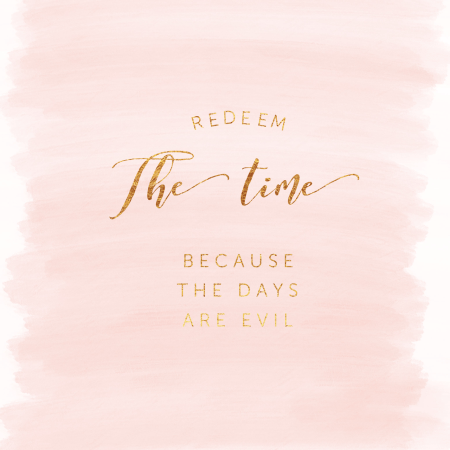 REDEEM
The time
BECAUSE
THE DAYS
ARE EVIL